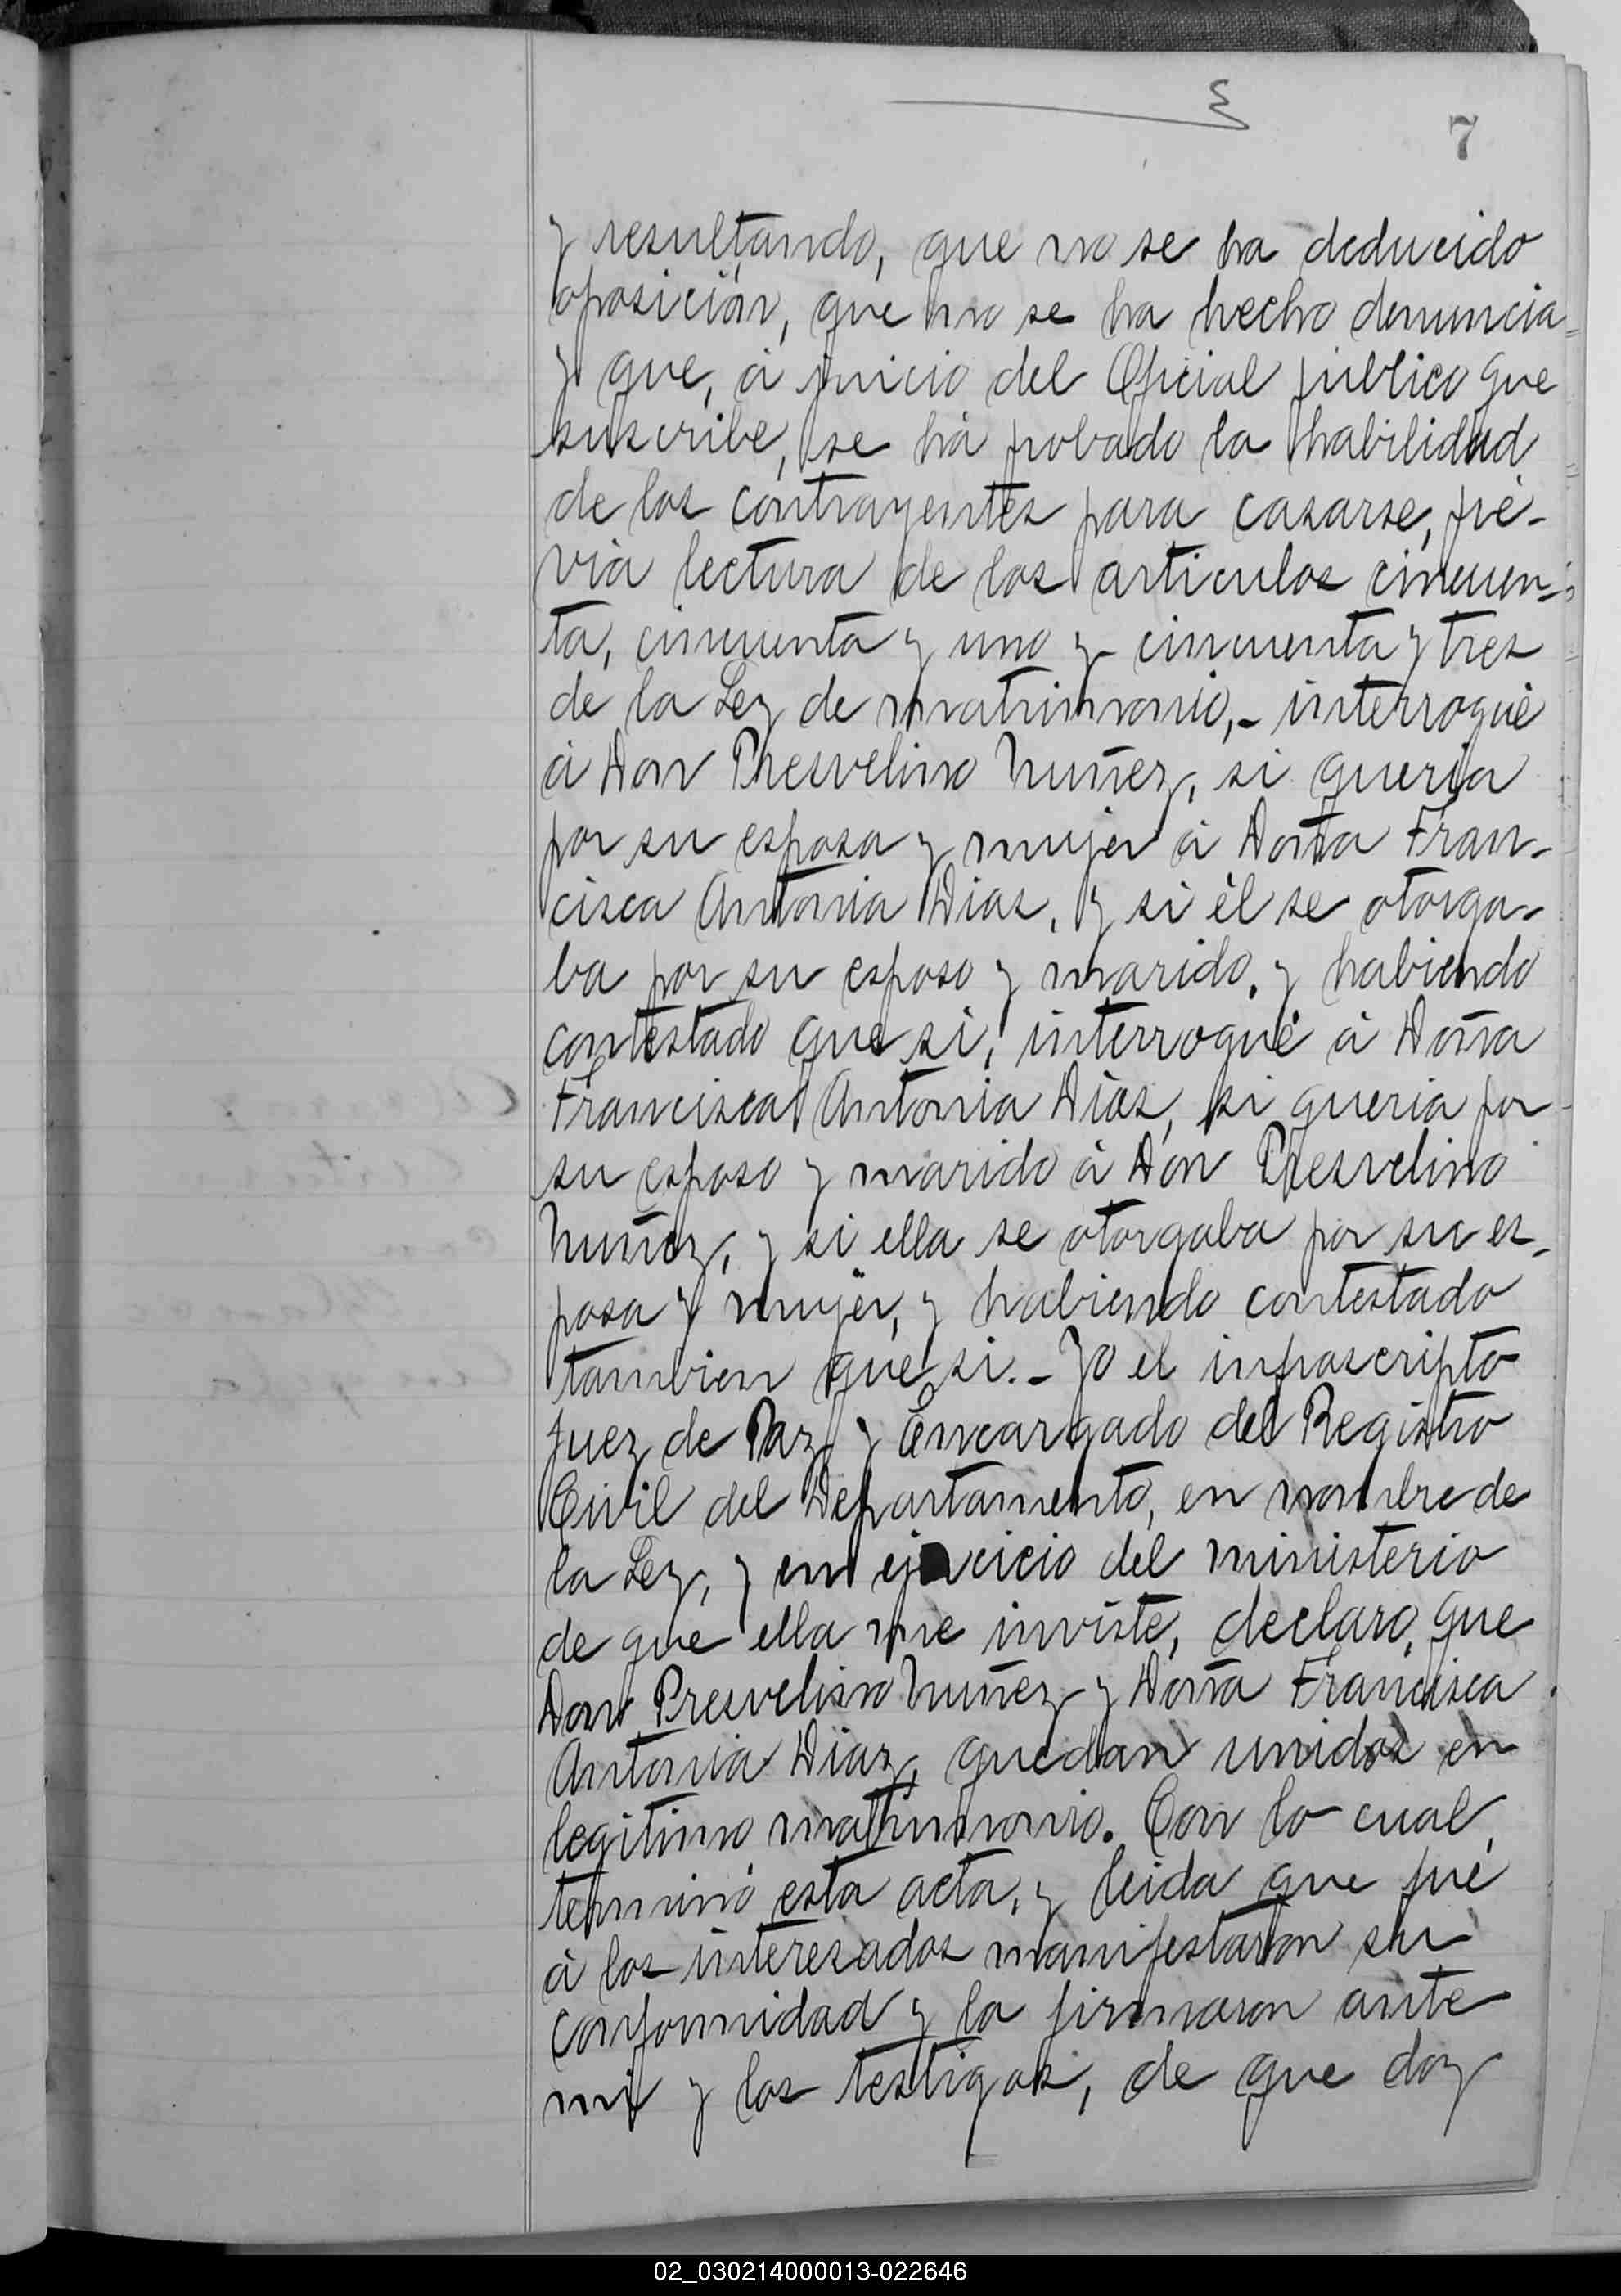 7
y resultando, que no se ha deducido
oposición, que no se ha hecho denuncia
y que, á juicio del Oficial público que
suscribe, se há probado la habilidad
de los contrayentes para casarse, pré-
via lectura de los articulos cincuen-
ta, cincuenta y uno y cincuenta y tres
de la Ley de matrimonio,- interrogué
á Don Presvelino Nuñez, si queria
por su esposa y mujer á Doña Fran-
cisca Antonia Dias, y si él se otorga-
ba por su esposo y marido, y habiendo
contestado que si, interrogué á Doña
Francisca Antonia Dias, si queria por
su esposo y marido á Don Presvelino
Nuñez, y si ella se otorgaba por su es-
posa y mujer, y habiendo contestado
tambien que si.- Yo el infrascripto
Juez de Paz y Encargado del Registro
Civil del Departamento, en nombre de
la Ley, y en ejercicio del ministerio
de que ella me inviste, declaro, que
Don Presvelino Nuñez y Doña Francisca
Antonia Diaz, quedan unidos en
legitimo matrimonio. Con lo cual,
terminó esta acta, y leida que fué
á los interesados manifestaron su
conformidad y la firmaron ante
mi y los testigos, de que doy
02_030214000013-022646